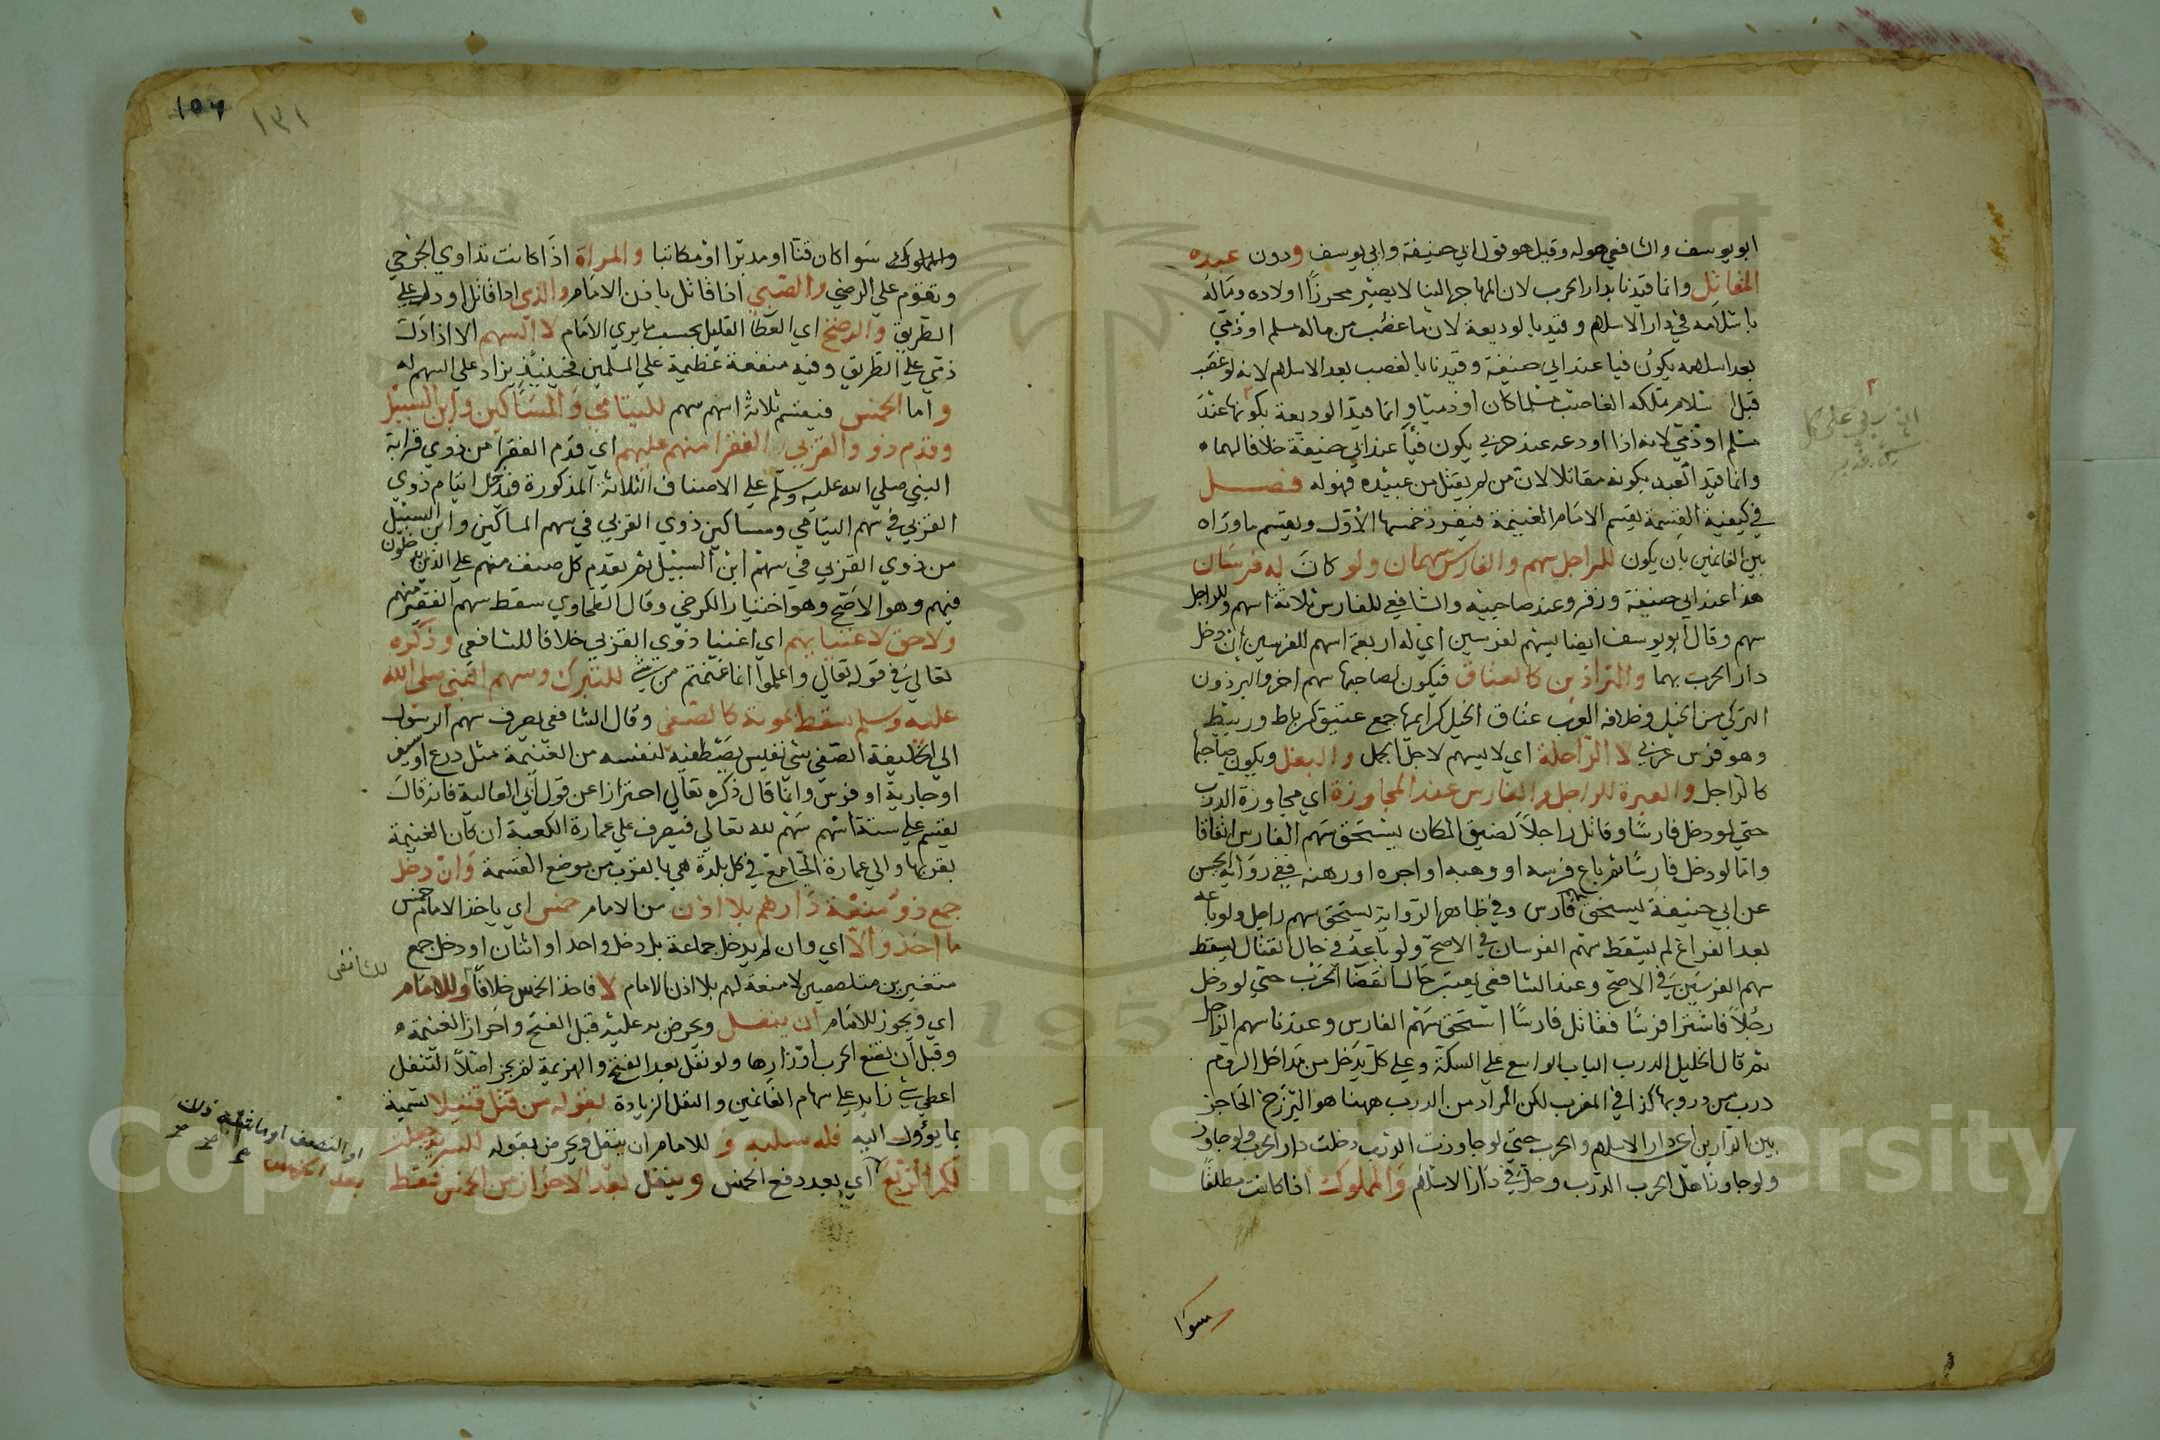 ابو يوسف والشافعي هو له وقيل هو قول ابي حنيفة وابي يوسف ودون عبده
المقاتل وانما قيدنا بدار الحرب لان المهاجر الينا لا يصير محرزا اولاده وماله
باسلامه في دار الاسلام وقيد بالوديعة لان ما غصب من ماله مسلم او ذمي
بعد اسلامه يكون فيا عند ابي حنيفة وقيدنا بالغصب بعد الاسلام لانه لو غصب
قبل اسلام تملكه الغاصب مسلما كان او ذميا وانما قيد الوديعة بكونها عند
مسلم او ذمي لانه اذا اودعه عند حربي يكون فيأ عند ابي حنيفة خلافا لهما
وانما قيد العبد بكونه مقاتلا لان من لم يقتل من عبيده فهو له فصل
في كيفية القسمة يقسم الامام الغنيمة فيفرد خمسها الاول ويقسم ما وراه
بين الغانمين بان يكون للراجل سهم وللفارس سهمان ولو كان له فرسان
هذا عند ابي حنيفة وزفر وعند صاحبيه والشافعي للفارس ثلاثة اسهم وللراجل
سهم وقال ابو يوسف ايضا يسهم لفرسين اي له اربعة اسهم للفرسين ان دخل
دار الحرب بهما والبراذين كالعناق فيكون لصاحبها سهم اخر والبرذون
التركي من الخيل وخلافه العرب عتاق الخيل كرايمها جمع عتيق كرباط وربيط
وهو فرس عربي لا الراحلة اي لا يسهم لاجل الجمل والبغل ويكون صاحبها
كالراجل والعبرة للراجل والفارس عند المجاوزة اي مجاوزة الدرب
حتي لو دخل فارسا وقاتل راجلا لضيق المكان يستحق سهم الفارس اتفاقا
وانما لو دخل فارسا ثم باع فرسه او وهبه او اجره او رهنه ففي رواية الحسن
عن ابي حنيفة يستحق فارس وفي ظاهر الرواية يستحق سهم راجل ولو باعه
بعد الفراغ لم يسقط سهم الفرسان في الاصح ولو باعه في حال القتال يسقط
سهم الفرسين في الاصح وعند الشافعي يعتبر حال انقضا الحرب حتي لو دخل
رجلا فاشترا فرسا فقاتل فارسا استحق سهم الفارس وعندنا سهم الراجل
ثم قال الخليل الدرب الباب الواسع علي السكة وعلي كل مدخل من مداخل الروم
درب من دروبها كذا في المغرب لكن المراد من الدرب ههنا هو البرزخ الحاجز
بين الدارين اي دار الاسلام والحرب حتي لو جاوزت الدرب دخلت دار الحرب ولو جاوز
ولو جاوزنا اهل الحرب الدرب دخل في دار الاسلام والمملوك اذا كانت مطلقا
سوا
والمملوك سوا كان قنا او مدبرا او مكاتبا والمراة اذا كانت تداوي الجرحي
وتقوم علي المرضي والصبي اذا قاتل باذن الامام والذمي اذا قاتل او دل علي
الطريق والرضخ اي العطا القليل بحسب ما يري الامام لا السهم الا اذا دل
ذمي علي الطريق وفيه منفعة عظيمة علي المسلمين فحينيذ يزاد علي السهم له
واما الخمس فيقسم ثلاثة اسهم سهم لليتامي والمساكين وابن السبيل
وقدم ذو والقربي الفقرا منهم عليهم اي قدم الفقرا من ذوي قرابة
النبي صلي الله عليه وسلم علي الاصناف الثلاثة المذكورة فيدخل ايتام ذوي
القربي في سهم اليتامي ومساكين ذوي القربي في سهم المساكين وابن السبيل
من ذوي القربي في سهم ابن السبيل ثم يقدم كل صنف منهم علي الذين يدخلون
فيهم وهو الاصح وهو اختيار الكرخي وقال الطحاوي سقط سهم الفقير منهم
ولا حق لاغنيايهم اي اغنيا ذوي القربي خلافا للشافعي وذكره
تعالي في قوله تعالي واعلموا انما غنمتم من شي للتبرك وسهم النبي صلى الله
عليه وسلم سقط بموته كالصفي وقال الشافعي يصرف سهم الرسول
الي الخليفة الصفي شي نفيس يصطفيه لنفسه من الغنيمة مثل درع او سيف
او جارية او فرس وانما قال ذكره تعالي احترازا عن قول ابي العالية فانه قال
يقسم علي ستة اسهم سهم لله تعالي فيصرف علي عمارة الكعبة ان كان الغنيمة
بقربها والي عمارة الجامع في كل بلدة هي بالقرب من موضع القسمة وان دخل
جمع ذو منعة دارهم بلا اذن من الامام خمس اي ياخذ الامام خمس
ما اخذوا والا اي وان لم يدخل جماعة بل دخل واحد او اثنان او دخل جمع
متغيرين متلصصين لا منعة لهم بلا اذن الامام لا فاخذ الخمس خلافا وللامام
للشافعي
اي ويجوز للامام ان ينفل ويحرض به عليه قبل الفتح واحراز الغنيمة
وقبل ان تضع الحرب اوزارها ولو نفل بعد الفتح والهزيمة لم يجز اصلا التنفل
اعطي شي زايد علي سهام الغانمين والنفل الزيادة بقوله من قتل قتيلا تسمية
بما يؤول اليه فله سلبه و للامام ان ينفل ويحرض بقوله للسرية جعلت
لكم الربع اي بعد رفع الخمس وينفل بعد الاحراز من الخمس فقط
او النصف او ما شبه ذلك
بعد الخمس